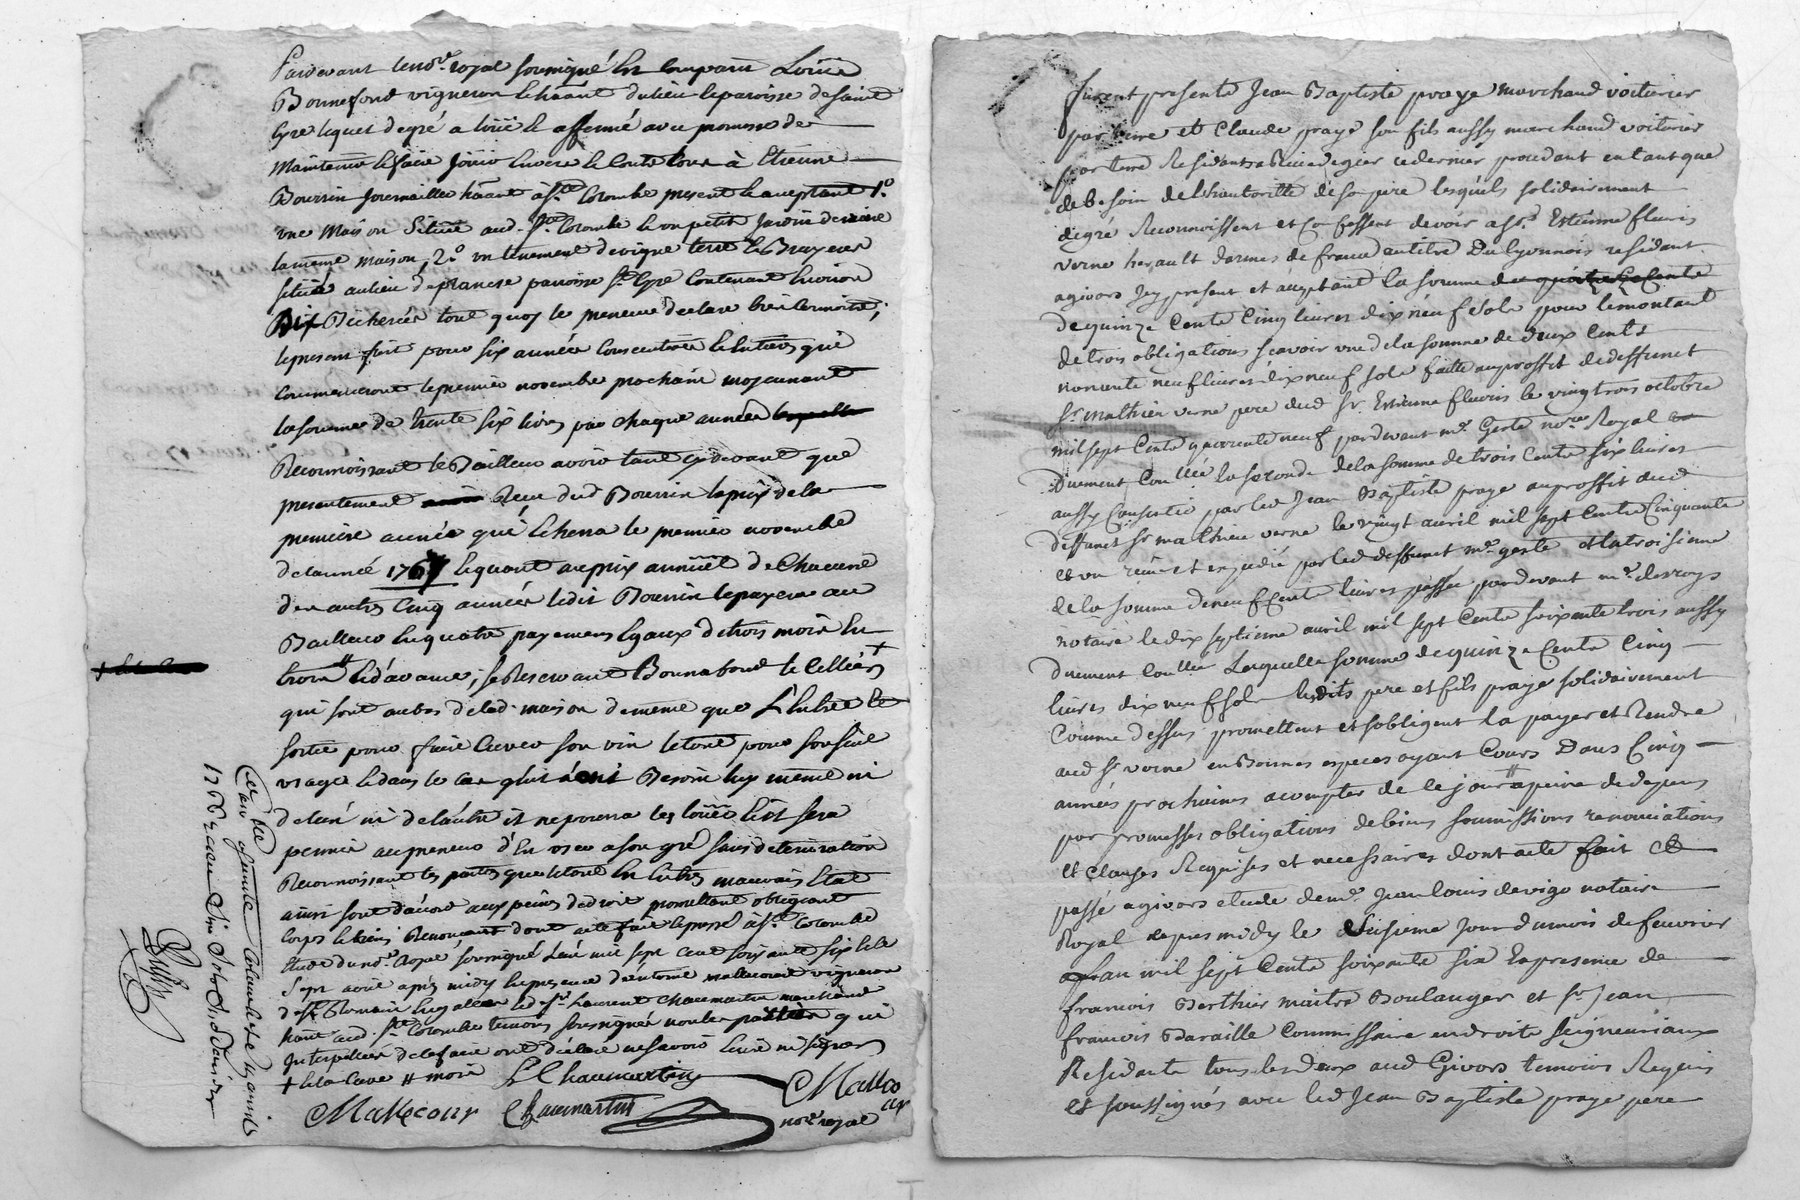 Pardevant le no.re royal soussigné en comparu Louis
Bonnefond vigneron habitant du lieu et paroisse de Saint
Cyre lequel de gré a loüé et affermé avec promesse de
Maintenir et faire jouir envers et contre tous à Etienne
Bourrin journaillier h.ant à S.te Colombe present et acceptant 1.o
une Maison Située aud. S.te Colombe et un petit Jardin deriere
la meme maison, 2.o un tenement de vigne terre et Bruyeres
situé au lieu de plancise paroisse S.t Cyre Contenant Environ
Dix Bicherées tout quoy le preneur declare bien connoitre;
le present fait pour six années Consecutives et Entieres qui
Commenceront le premier novembre prochain moyennant
la somme de trente six livres par chaque année
Reconnoissant le Bailleur avoir tant cy devant que
presentement Reçu dud Bourrin le prix de la
premiere année qui Echerra le premier novembre
de l'année 1767 et quant au prix annuel de Chacune
des autres Cinq années ledit Bourrin le payera au
Bailleur en quatre payemens Egaux de trois mois En
trois et d'avance, se Reservant Bonnefond le Cellier
qui sont au bas de lad. maison de meme que l'Entrée et
sortie pour faire Cuver son vin le tout pour son seul
usage et dans le cas qu'il n'eut Besoin luy même ni
de l'un ni de l'autre il ne pourra les loüer Et il sera
permis au preneur d'En user a son gré sans deterioration
Reconnoissant les parties que le tout En Entres mauvais Etat
ainsi sont d'acord aux peines de droit promettant obligeant
Corps et biens Renonçant dont acte fait et passé à S.te Colombe
Etude du no.re Royal soussigné L'an mil sept cent soixante six et le
Sept avril après midy En presence d'antoine mallecourt vigneron
de S.t Romain En gallier et S.r Laurent Chaumartin marchand
h.ant aud. S.te Colombe temoins soussignés non les parties qui
Interpellées de le faire ont déclaré ne savoir Ecrire ni signer
+ et la Cave # mois L. Chaumartin
Mallecour Chaumartin Mallecour
no.re royal
1766
furent presents Jean Baptiste praye marchand voiturier
par terre et Claude praye son fils aussy marchand voiturier
par terre Residants a Rive de gier ce dernier procedant en tant que
de besoin de l'hautorité de son pire lesquels solidairement
de gré Reconnoissent et Confessent devoir a S.r Estienne fleuris
verne herault d'armes de france au titre Du lyonnois residant
a givors Icy present et acceptant la somme de quatorze Cents
de quinze Cents Cinq livres dix neuf sols pour le montant
de trois obligations scavoir une de la somme de deux Cents
nonante neuf livres dix neuf sols faitte au proffit de deffunct
S.r mathier verne pere dud S.r Estienne fleuris le vingt trois octobre
mil sept Cents quarente neuf pardevant m.e Geste no.re Royal
Duement Con.llée la seconde de la somme de trois Cents six livres
aussy Consentie par led Jean Baptiste praye au proffit dud
deffunct S.r mathieu verne le vingt avril mil sept Cents Cinquante
et un par led deffunct m.e geste et la troisieme
de la somme de neuf Cents livres passée pardevant m.e desroys
notaire le dix septieme avril mil sept Cents soixante trois aussy
duement Con.llée Laquelle somme de quinze Cents Cinq
livres dix neuf sols lesdits pere et fils praye solidairement
Comme dessus promettent et s'obligent la payer et Rendre
aud S.r verne en Bonnes especes ayant Cours Dans Cinq
années prochaines a compter de ce jour a peine de depens
par promesses obligations de biens soumissions renonciations
et clauses Requises et necessaires dont acte fait et
passé a givors etude de m.e Jean louis devigo notaire
Royal apres midy le deusieme Jour du mois de fevrier
l'an mil sept Cents soixante six En presence de
francois Berthier maitre Boulanger et S.r Jean
francois Baraille Commissaire en droits seigneuriaux
Residants tous les deux aud Givors temoins Requis
et soussignés avec led Jean Baptiste praye pere